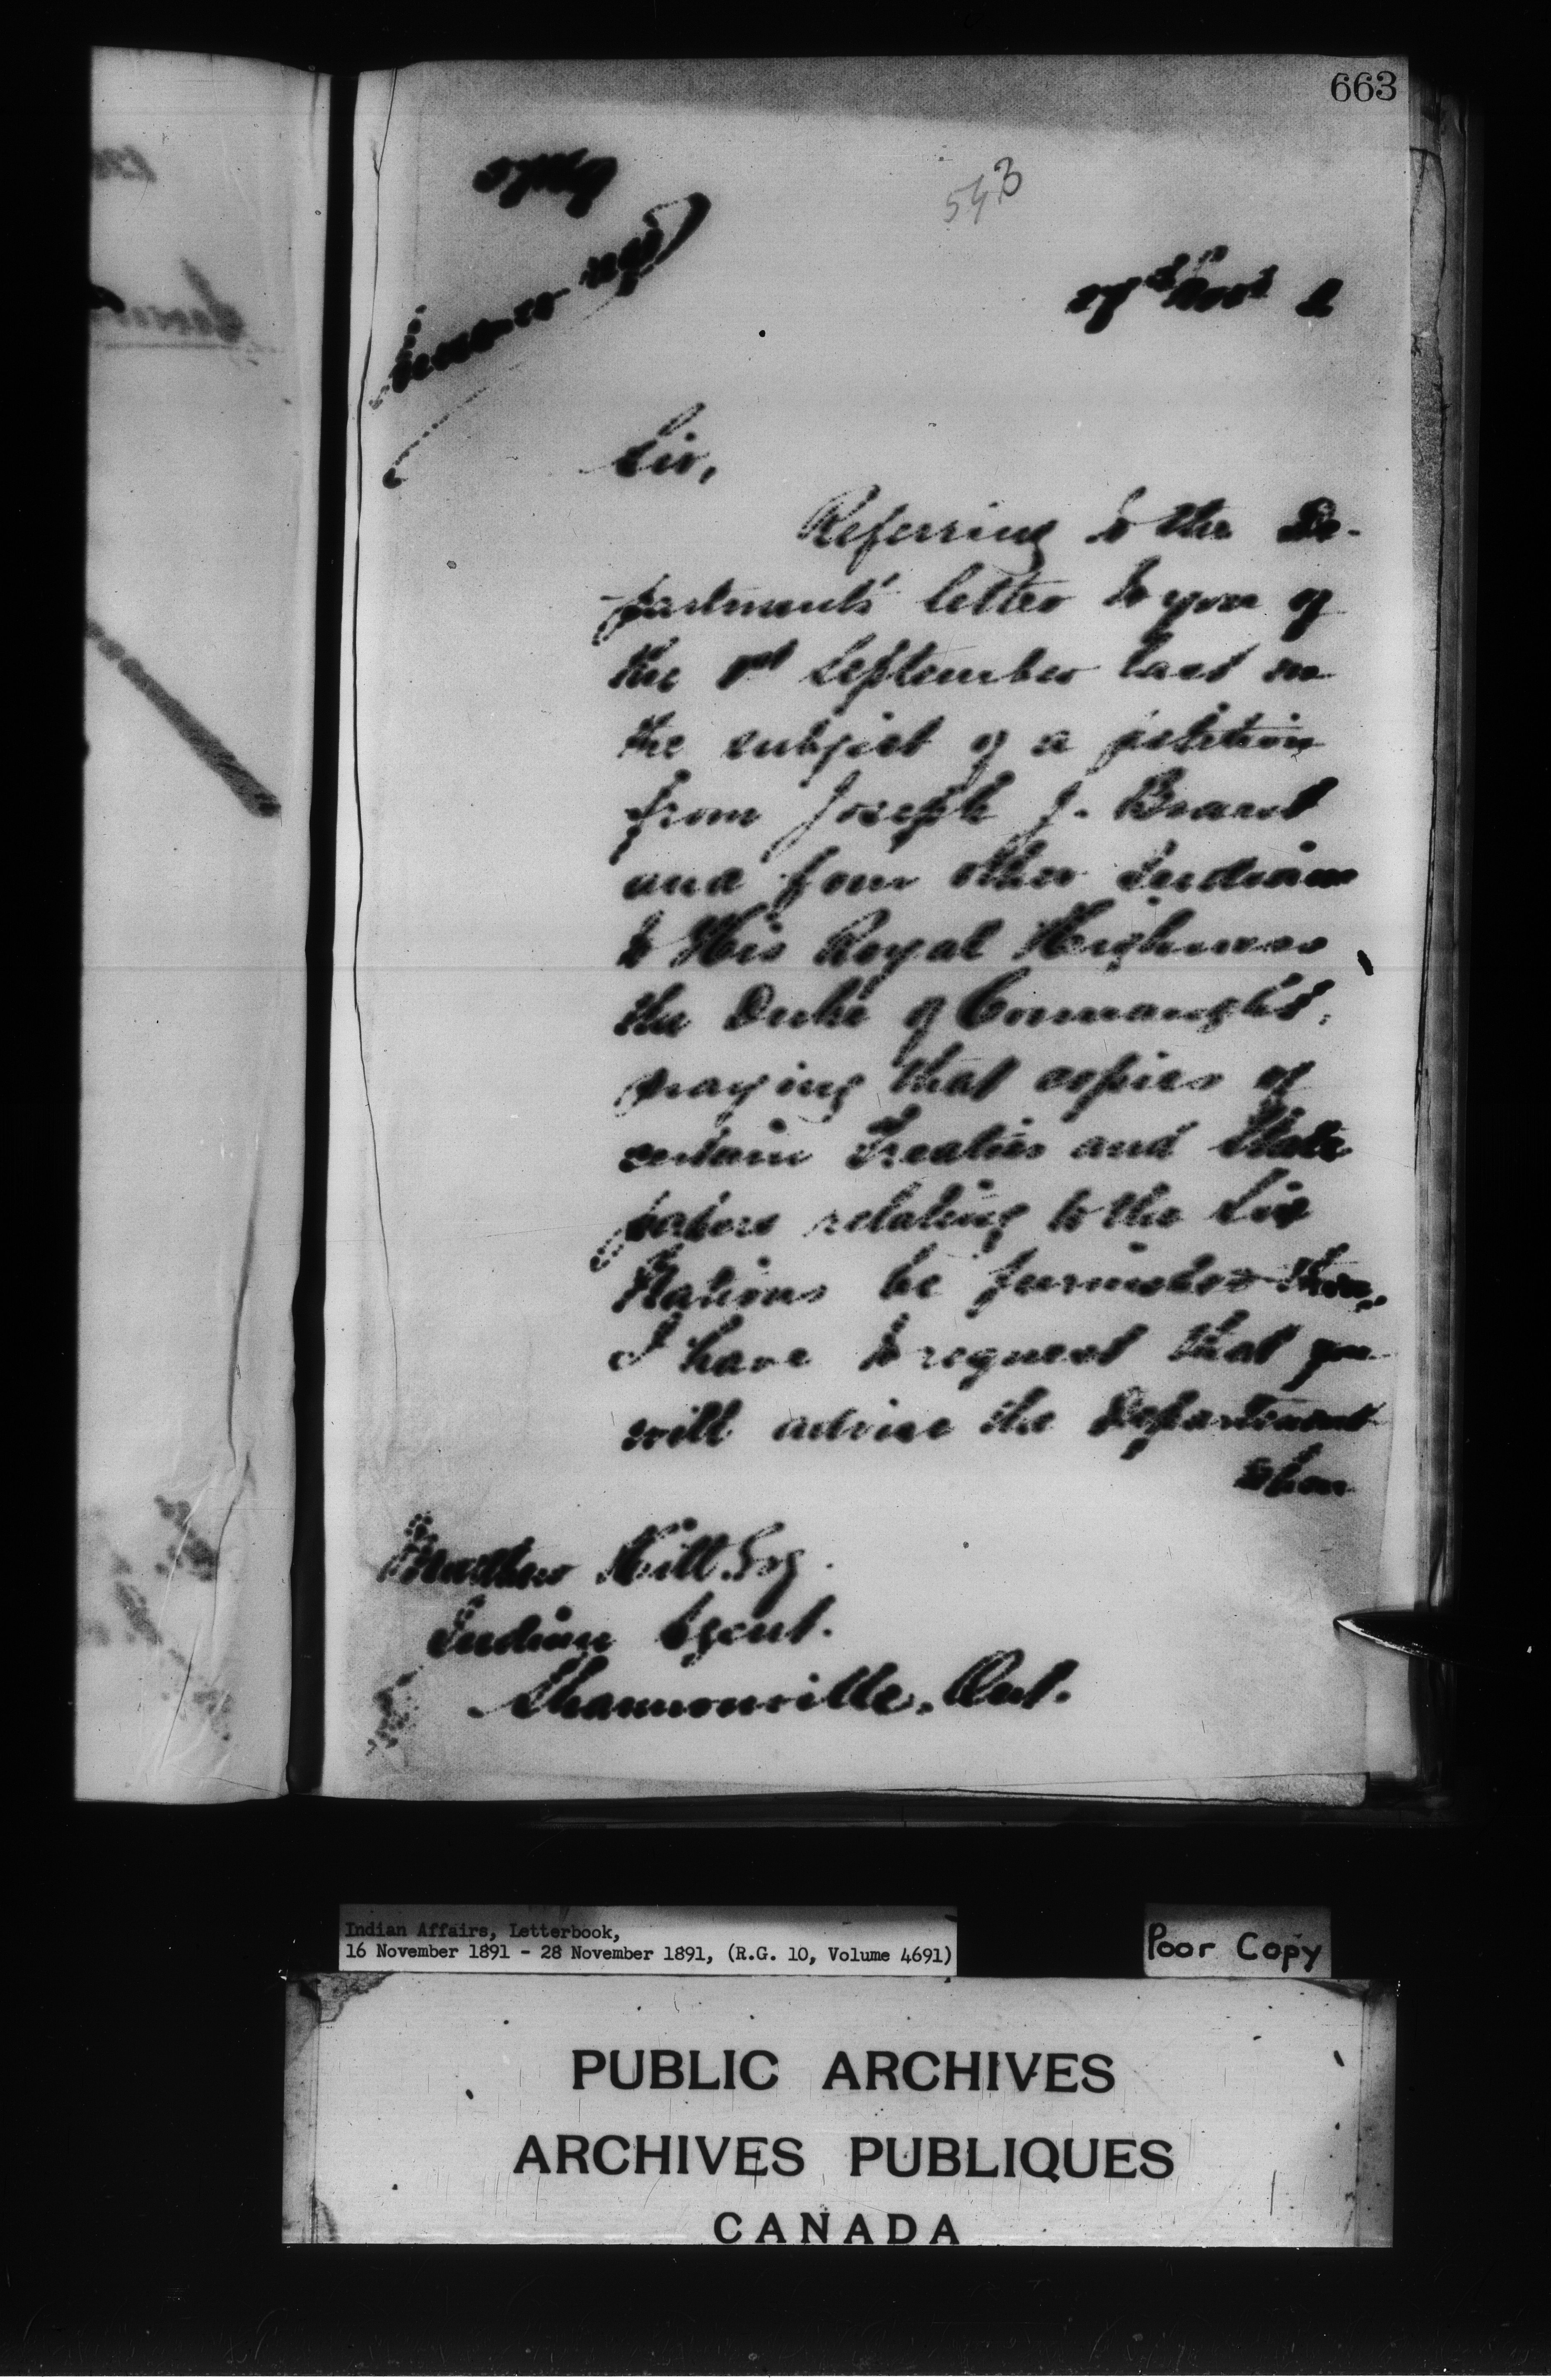 663
543
27th Novr 1
Sir,
Referring to the De-
-partment's letter to you of
the 1st September last on
the subject of a petition
from Joseph J. Brant
and four other Indians
to His Royal Highness
the Duke of Connaught,
praying that copies of
certain Treaties and State
papers relating to the Six
Nations be furnished them,
I have to request that you
will advise the Department
when
Matthew Hill Esq.
Indian Agent.
Shannonville, Ont.
Indian Affairs, Letterbook,
16 November 1891 - 28 November 1891, (R.G. 10, Volume 4691)
Poor Copy
PUBLIC ARCHIVES
ARCHIVES PUBLIQUES
CANADA